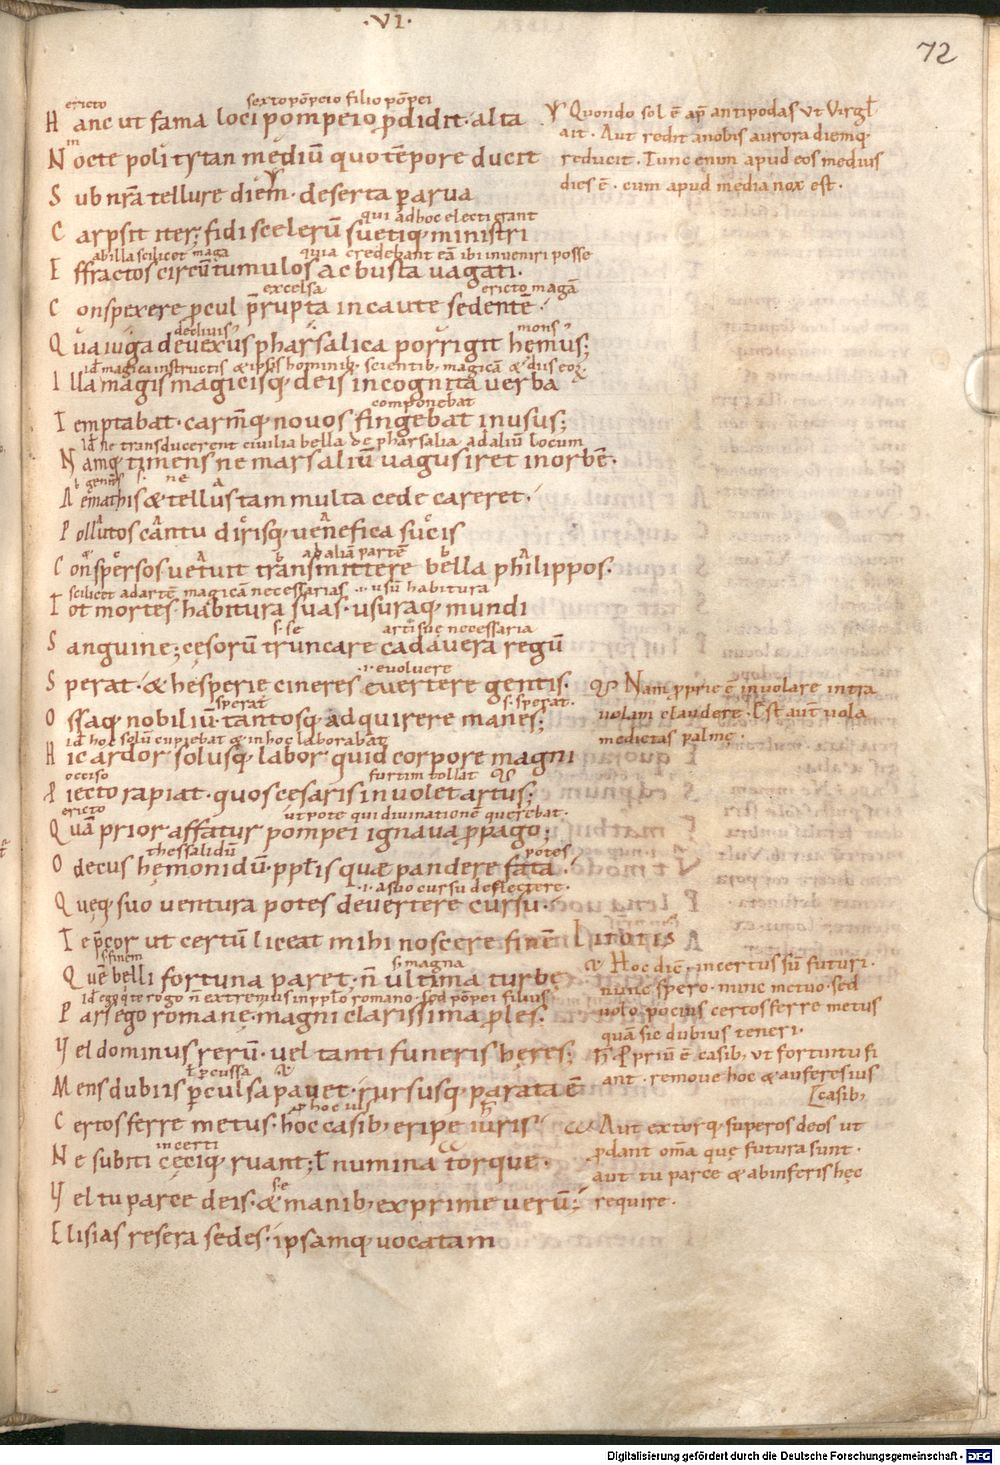 ·VI·
72
ericto sexto põpeio filio põpei
Hanc ut fama loci pompeio ꝓdidit· alta
Nocte poli tytan mediũ quo tẽpore ducit
Sub nr̃a tellure diem· deserta ꝑ arua
qui ad hoc electi erant
Carpsit iter; fidi scelerũ suetiq; ministri
ab illa scilicet maga quia credebant eã ibi inueniri posse
Effractos circũ tumulos ac busta uagati·
excelsa ericto magã
Conspexere ꝓcul p̃rupta in caute sedentẽ·
decliuis mons
Qua iuga deuexus pharsalica porrigit hęmus;
id magica instructis & ipsis hominib; scientib; magicã & diis eoꝝ
Illa magis magicisq; deis incognita uerba
componebat
Temptabat· carm̃q; nouos fingebat in usus;
id ne transducerent ciuilia bella de pharsalia ad aliũ locum
Namq; timens ne mars aliũ uagus iret in orbẽ·
ne
Aemathis & tellus tam multa cede careret·
Pollutos cantu dirisq; uenefica sucis
ad aliã partẽ
Conspersos uetuit transmittere bella philippos·
scilicet ad artẽ magicã necessarias ·i· usũ habitura
Tot mortes· habitura suas· usuraq; mundi
s· se arti suę necessaria
Sanguine; cęsorũ truncare cadauera regũ
·i· euoluere
Sperat· & hesperię cineres euertere gentis·
sperat s· sperat·
Ossaq; nobiliũ· tantosq; adquirere manes;
id hoc solũ cupiebat & in hoc laborabat
Hic ardor solusq; labor quid corpore magni
occiso furtim tollat
Piecto rapiat· quos cesaris inuolet artus;
ericto utpote qui diuinationẽ querebat·
Quã prior affatur pompei ignaua ꝓpago;
thessalidũ potes
O decus hęmonidũ· ppłis quę pandere fata
·i· a suo cursu deflectere·
Quęq; suo uentura potes deuertere cursu·
Te p̃cor ut certũ liceat mihi noscere finẽ
s· finem s· magna
Quẽ belli fortuna paret· ñ ultima turbę
id ego q̃ te rogo ñ extremus in ppło romano· sed põpei filius
Pars ego romanę· magni clarissima ꝓles·
Vel dominus rerũ· uel tanti funeris heres;
ł ꝑcussa
Mens dubiis ꝑculsa pauet· rursusq; parata ẽ
Certos ferre metus· hoc casib; eripe iuris
incerti
Ne subiti cęciq; ruant; ł numina torque·
se
Vel tu parce deis· & manib; exprime uerũ;
Elisias resera sedes· ipsamq; uocatam
Quando sol ẽ ap̃ antipodas ut Virgł
ait· Aut redit a nobis aurora diemq;
reducit· Tunc enim apud eos medius
dies ẽ· cum apud media nox est·
Nam ꝓprie ẽ inuolare intra
uolam claudere· Est aut̃ uola
medietas palmę·
Litotis
Hoc dic̃· incertus sũ futuri·
nunc spero· nunc metuo· sed
uolo pocius certos ferre metus
quã sic dubius teneri·
Ꝓpriũ ẽ casib; ut fortuitu fi
ant· remoue hoc & auferes ius
casib;
Aut extorq; superos deos ut
ꝓdant om̃a quę futura sunt·
aut tu parce & ab inferis hęc
require·
Digitalisierung gefördert durch die Deutsche Forschungsgemeinschaft - DFG